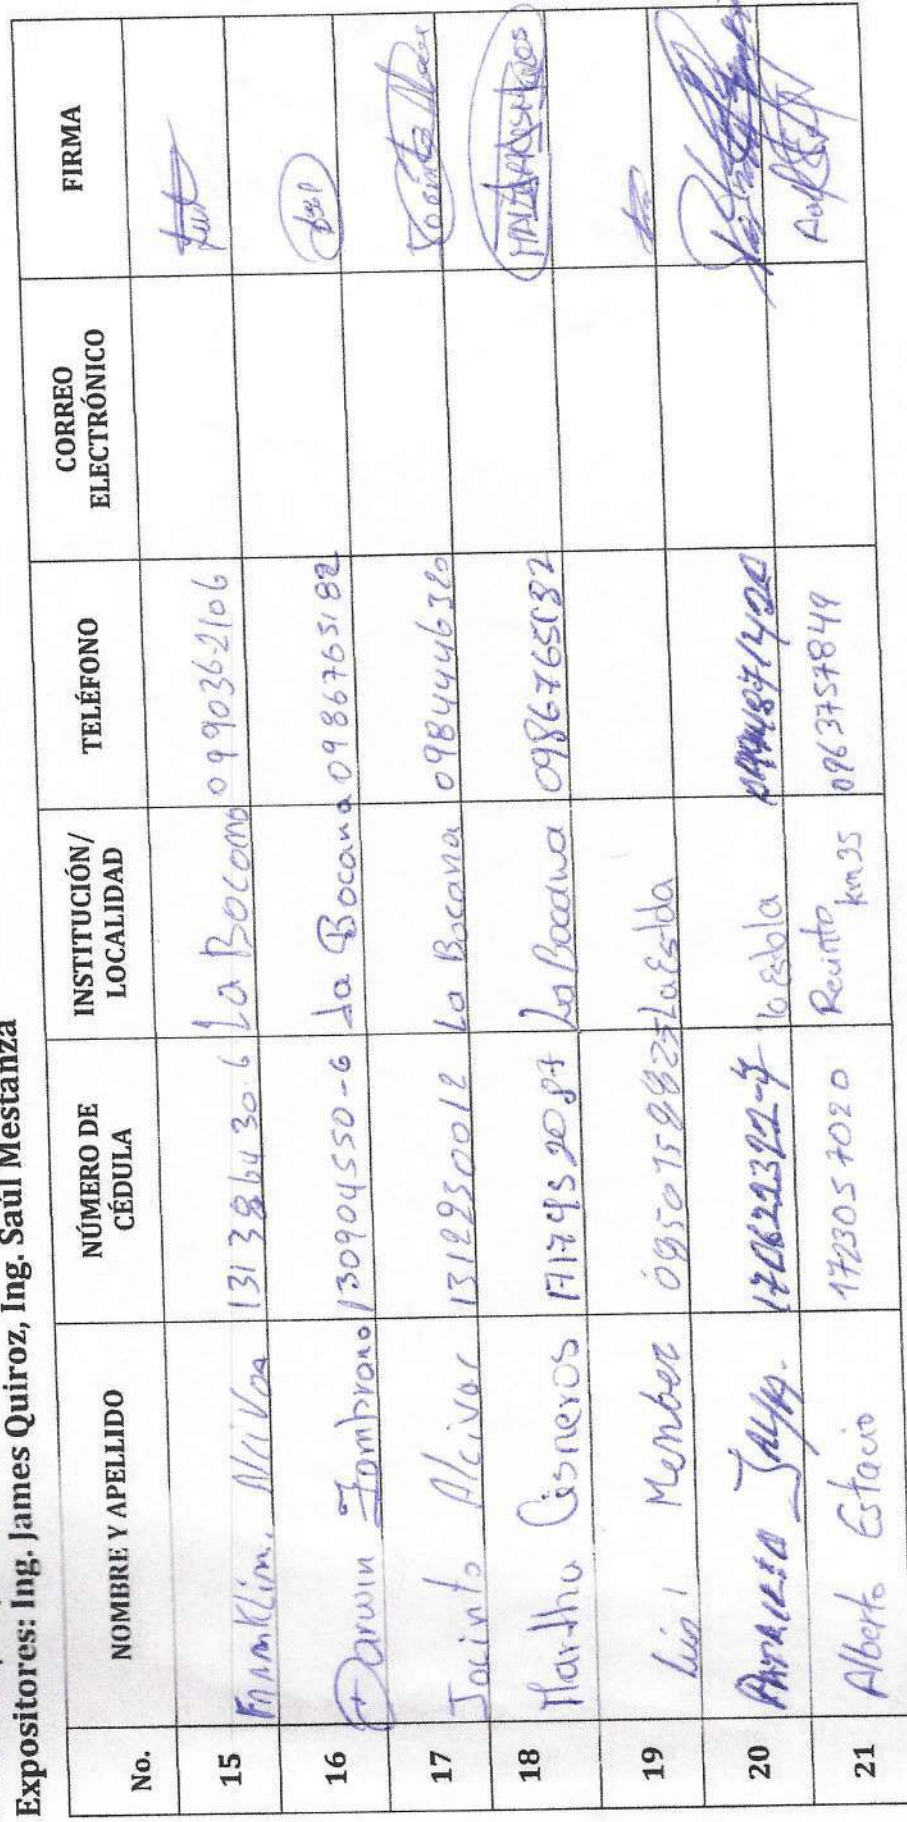 Expositores: Ing. James Quiroz, Ing. Saúl Mestanza
No. NOMBRE Y APELLIDO NÚMERO DE CÉDULA INSTITUCIÓN/ LOCALIDAD TELÉFONO CORREO ELECTRÓNICO FIRMA
15 Franklin. Alcivar 131386430-6 La Bocana 0990362106
16 Darwin Zambrano 130904550-6 La Bocana 0986765182
17 Jacinto Alcivar 1312950012 La Bocana 0984446320
18 Martha Cisneros 1717952087 La Bocana 0986765182
19 Luis Mendez La Esilda
20 170622322-7 la Esilda
21 Alberto Estacio 1723057020 Recinto km 35 0963757849